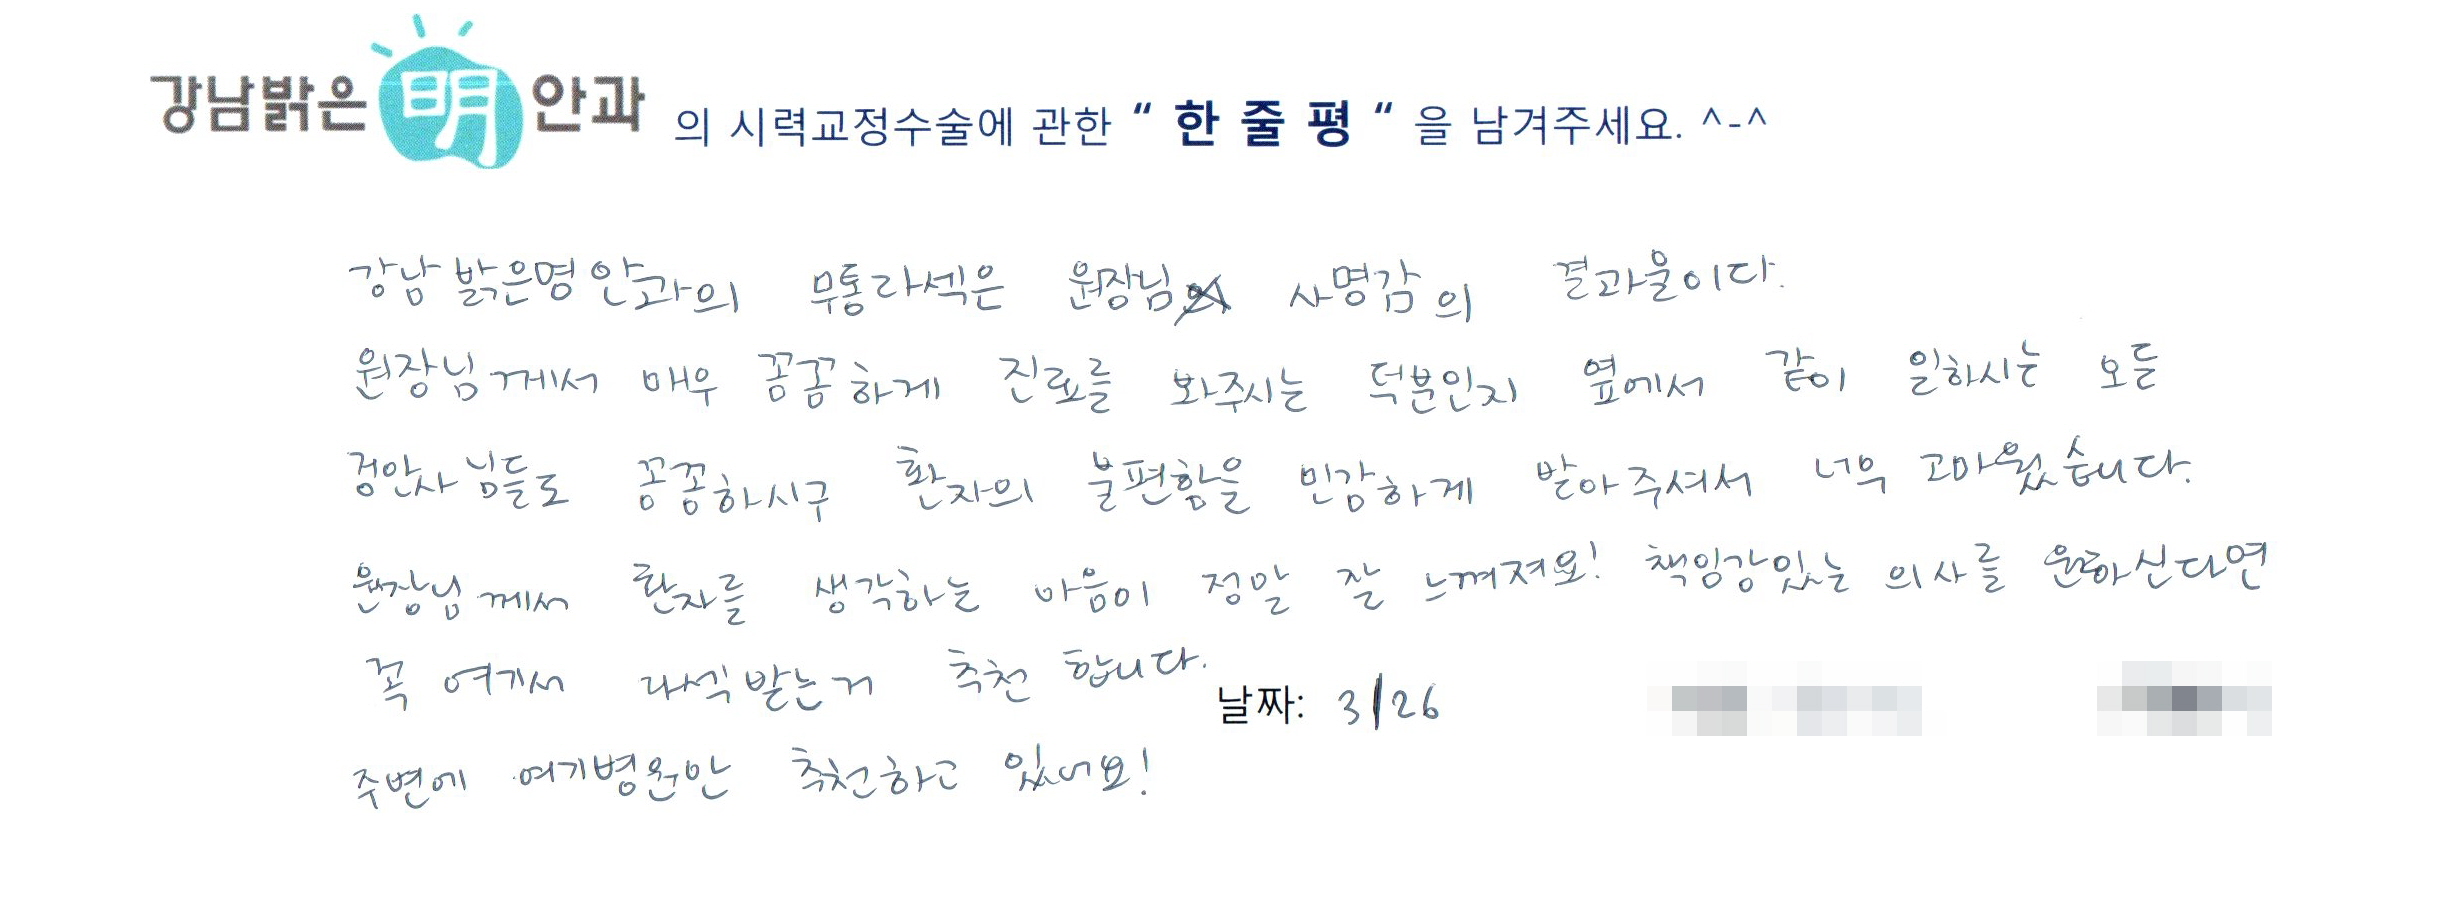 강남밝은明안과 의 시력교정수술에 관한 “ 한 줄 평 “ 을 남겨주세요. ^-^
강남밝은명안과의 무통라섹은 원장님 사명감의 결과물이다.
원장님께서 매우 꼼꼼하게 진료를 봐주시는 덕분인지 옆에서 같이 일하시는 모든
검안사님들도 꼼꼼하시구 환자의 불편함을 민감하게 받아주셔서 너무 고마웠습니다.
원장님께서 환자를 생각하는 마음이 정말 잘 느껴져요! 책임감있는 의사를 원하신다면
꼭 여기서 라섹받는거 추천 합니다.
날짜: 3/26
주변에 여기병원만 추천하고 있어요!